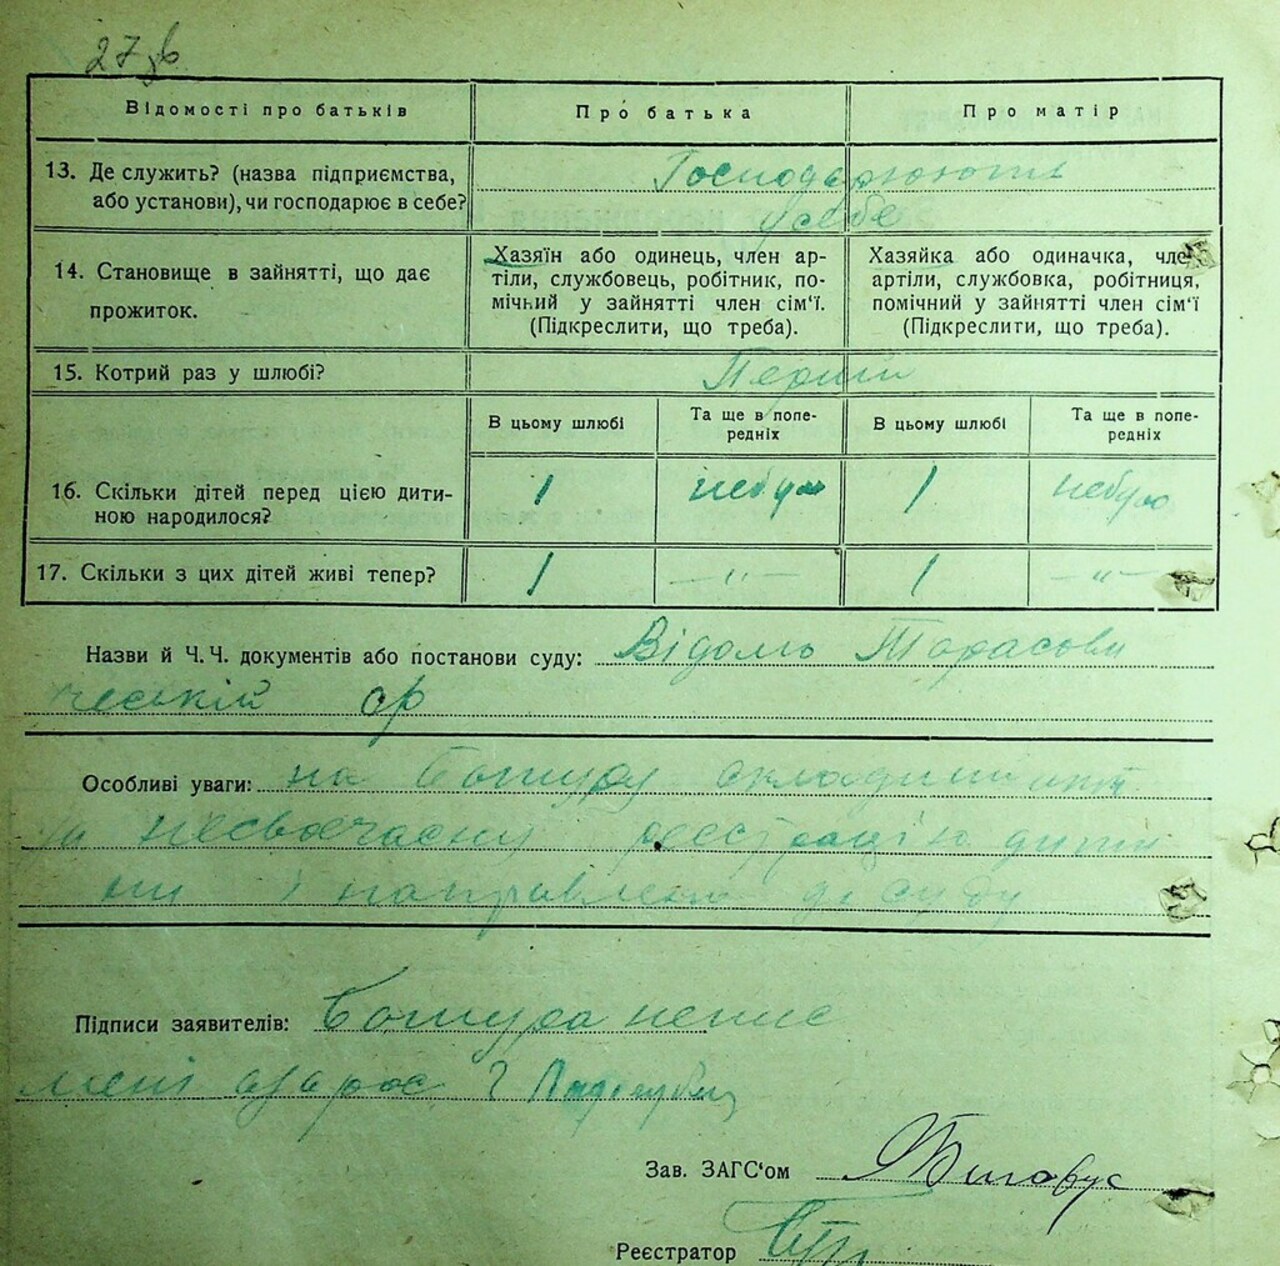 27 зв
Відомості про батьків
Про батька
Про матір
13. Де служить? (назва підприємства,
або установи), чи господарює в себе?
Господарюють
у себе
14. Становище в зайнятті, що дає
прожиток.
Хазяїн або одинець, член ар-
тіли, службовець, робітник, по-
мічний у зайнятті член сім'ї.
(Підкреслити, що треба).
Хазяйка або одиначка, член
артіли, службовка, робітниця,
помічний у зайнятті член сім'ї
(Підкреслити, що треба).
15. Котрий раз у шлюбі?
Перший
В цьому шлюбі
Та ще в попе-
редніх
В цьому шлюбі
Та ще в попе-
редніх
16. Скільки дітей перед цією дити-
ною народилося?
1 небуло 1 небуло
17. Скільки з цих дітей живі тепер?
1 —"— 1 —"—
Назви й Ч. Ч. документів або постанови суду: Відомо Тарасови
ческій ср
Особливі уваги: на складений акт
за несвоєчасну реєстрацію дити
ни і направлено до суду
Підписи заявителів: непис
Зав. ЗАГС'ом
Реєстратор